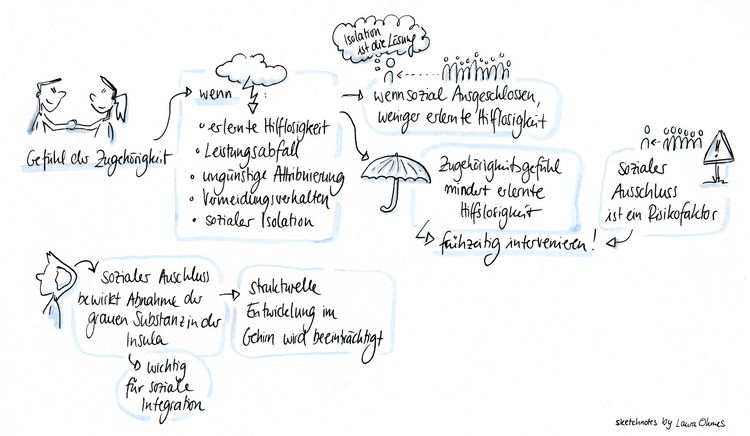 Gefühl der Zugehörigkeit
wenn :
• erlernte Hilflosigkeit
• Leistungsabfall
• ungünstige Attribuierung
• Vermeidungsverhalten
• sozialer Isolation
Isolation
ist die Lösung
wenn sozial Ausgeschlossen,
weniger erlernte Hilflosigkeit
Zugehörigkeitsgefühl
mindert erlernte
Hilfslosigkeit
frühzeitig intervenieren!
!
sozialer
Ausschluss
ist ein Risikofaktor
sozialer Auschluss
bewirkt Abnahme der
grauen Substanz in der
Insula
wichtig
für soziale
Integration
strukturelle
Entwicklung im
Gehirn wird beeinträchtigt
sketchnotes by Laura Ohmes